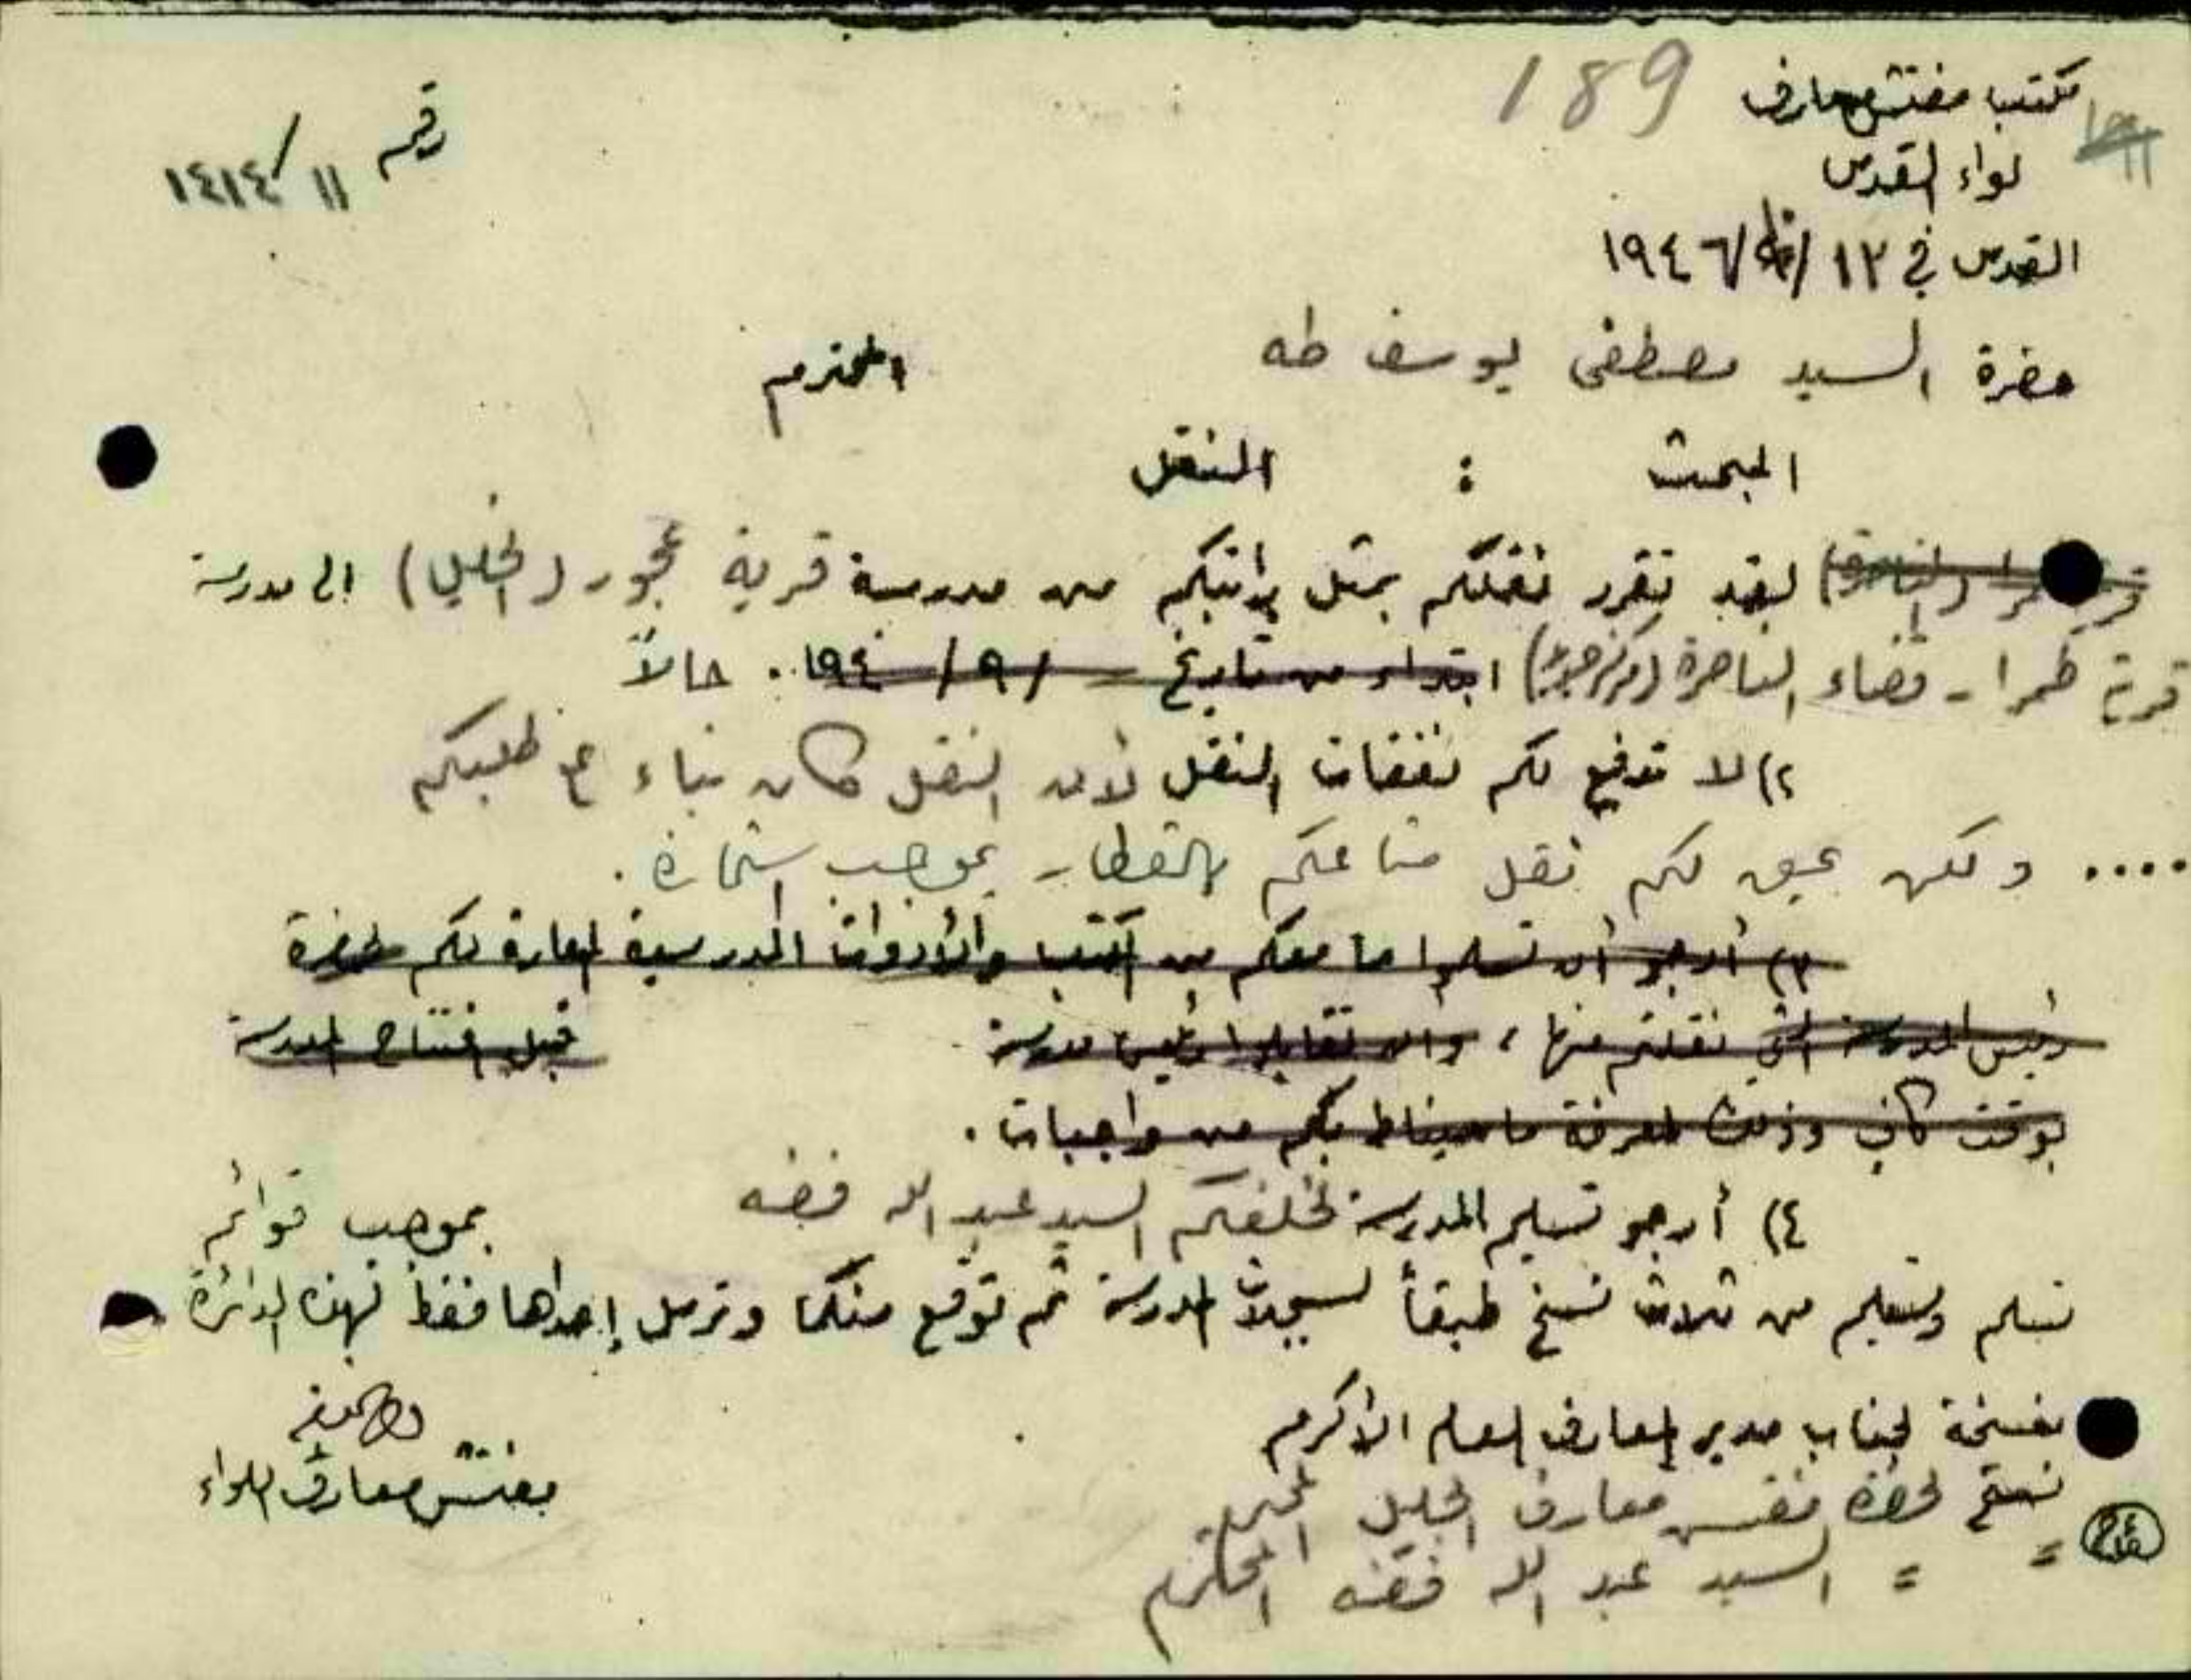 189
مكتب مفتش معارف
لواء القدس
رقم ١١/١٤١٤
القدس في ١٢/ /١٩٤٦
حضرة السيد مصطفى يوسف طه المحترم
المبحث : النقل
لقد تقرر نقلكم بمثل راتبكم من مدرسة قرية عجور (الخليل) الى مدرسة
قرية طمرا - قضاء الناصرة ابتداء من تاريخ / ٩ / ١٩٤ . حالاً
٢) لا تدفع لكم نفقات النقل لأن النقل كان بناء على طلبكم
.... ولكن يحق لكم نقل متاعكم بالقطار بموجب استمارة .
٣) أرجو أن تسلموا ما معكم من الكتب والأدوات المدرسية المعارة لكم لحضرة
رئيس المدرسة التي نقلتم منها ، وان تقابلوا رئيس مدرسة قبل افتتاح المدرسة
بوقت كاف وذلك لمعرفة ما سيناط بكم من واجبات .
٤) أرجو تسليم المدرسة لخلفكم السيد عبد الله فضه بموجب قوائم
تسلم وتسليم من ثلاث نسخ طبقاً لسجلات المدرسة ثم توقع منكما وترسل إحداها فقط لهذه الدائرة
مفتش معارف اللواء
نسخة لجناب مدير المعارف العام الأكرم
نسخة لحضرة مفتش معارف الجليل المحترم
= = السيد عبد الله فضه المحترم